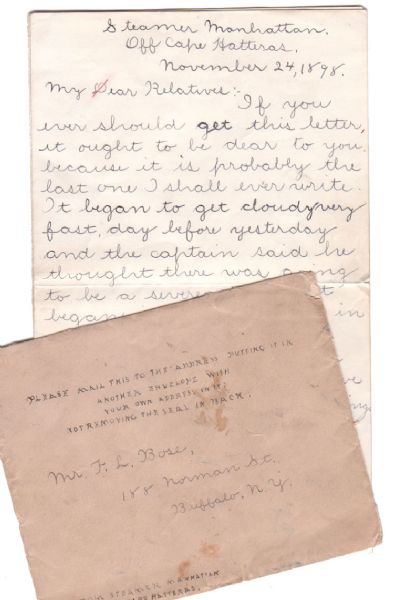 Steamer Manhattan.
Off Cape Hatteras,
November 24, 1898.
My Dear Relatives:-
If you
ever should get this letter,
it ought to be dear to you
because it is probably the
last one I shall ever write.
It began to get cloudy very
fast, day before yesterday
and the captain said he
thought there was going
to be a severe
began in
PLEASE MAIL THIS TO THE ADDRESS PUTTING IT IN
ANOTHER ENVELOPE WITH
YOUR OWN ADDRESS IN IT;
NOT REMOVING THE SEAL IN BACK.
Mr. F. L. Bose,
188 Norman St.
Buffalo, N.Y.
FROM STEAMER MANHATTAN
HATTERAS.